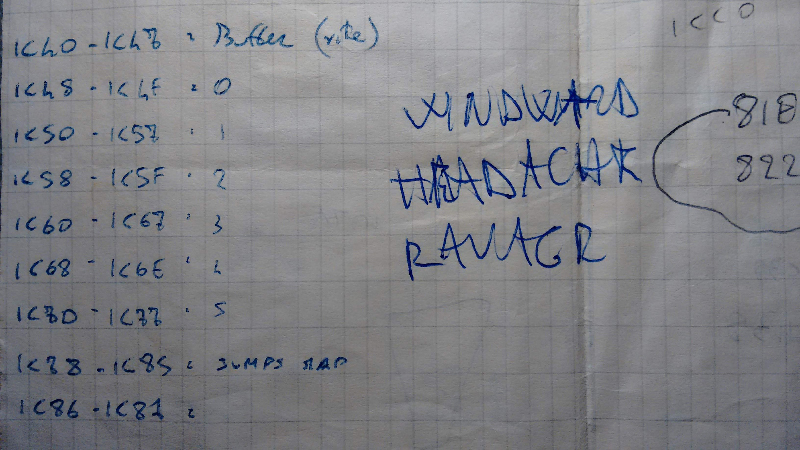 1C40 - 1C47 = Buffer
1C48 - 1C4F = 0
1C50 - 1C57 = 1
1C58 - 1C5F = 2
1C60 - 1C67 = 3
1C68 - 1C6F = 4
1C70 - 1C77 = 5
1C78 - 1C85 = JUMPS MAP
1C86 - 1C87 =
1CC0
WINDWARD
HEADACHE
RAVAGR
818
822